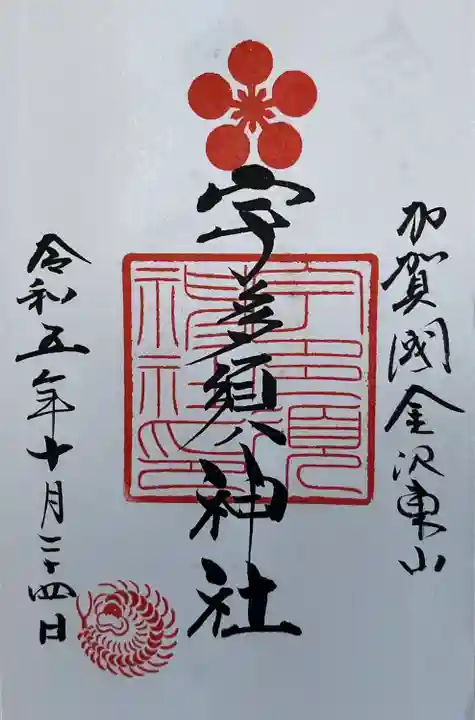 加賀國金沢東山
宇多須神社
令和五年十月二十四日